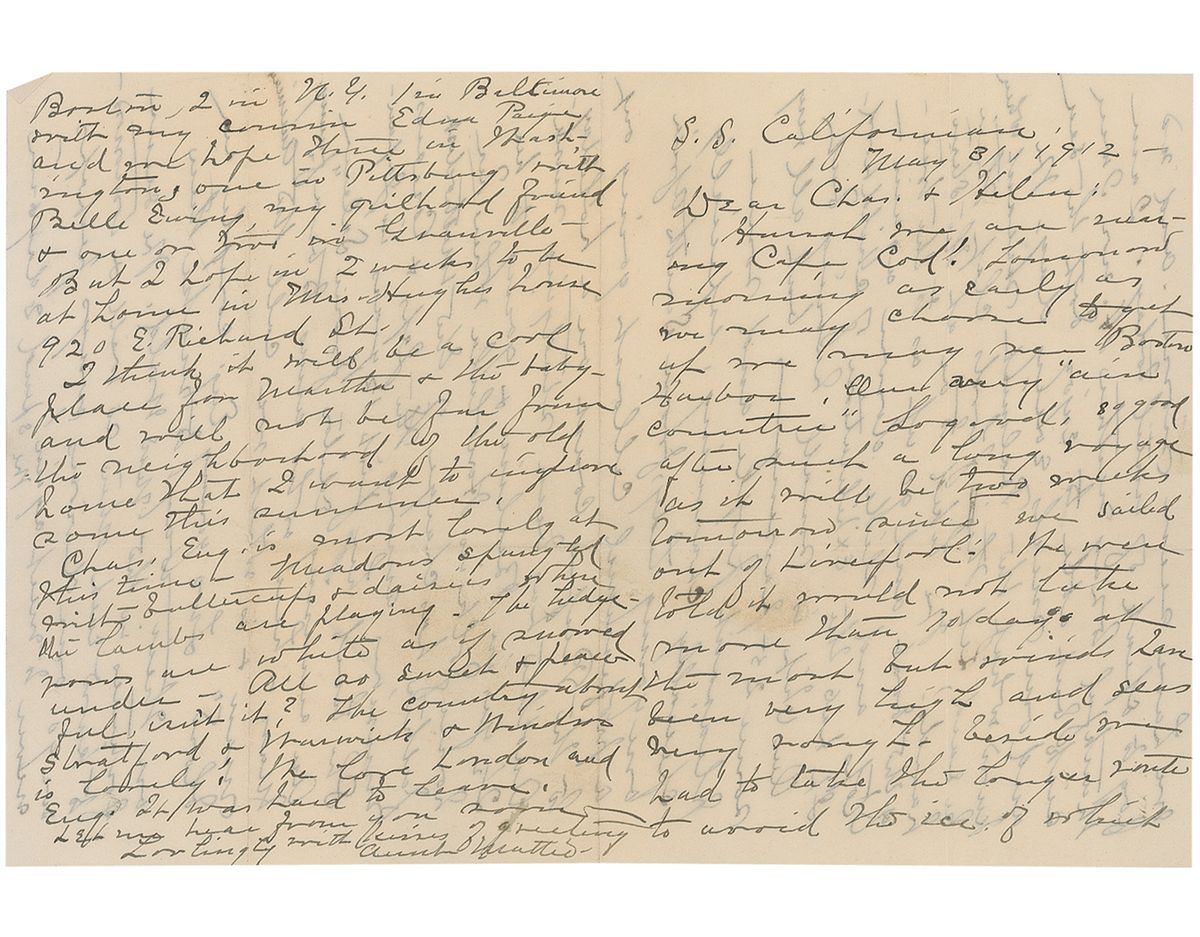 S. S. Californian,
May 31, 1912 —
Dear Chas. & Helen:
Hurrah we are near-
ing Cape Cod! Tomorrow
morning as early as
we may choose to get
up we may see Boston
Harbor, Our very "ain
countree" So good, so good
after such a long voyage
as it will be two weeks
tomorrow since we sailed
out of Liverpool. We were
told it would not take
more than 10 days at
the most but winds have
been very high and seas
very rough – beside we
had to take the longer route
to avoid the ice, of which
Boston, 2 in N.Y. 1 in Baltimore
with my cousin Edna Paige
and we hope three in Wash-
ington & one in Pittsburg with
Belle Ewing, my girlhood friend
& one or two in Granville –
But I hope in 2 weeks to be
at home in Mrs. Hughes house
920 E. Richard St.
I think it will be a cool
place for Martha & the baby –
and will not be far from
the neighborhood of the old
home that I want to improve
some this summer.
Chas, Eng. is most lovely at
this time – Meadows spangled
with buttercups & daisies where
the lambs are playing – The hedge-
rows are white as if snowed
under – All so sweet & peace-
ful, isn't it? The country about
Stratford & Warwick & Windsor
is lovely! We love London and
Eng. It was hard to leave.
Let me hear from you soon –
Lovingly with kisses of greeting
Aunt Mattie –